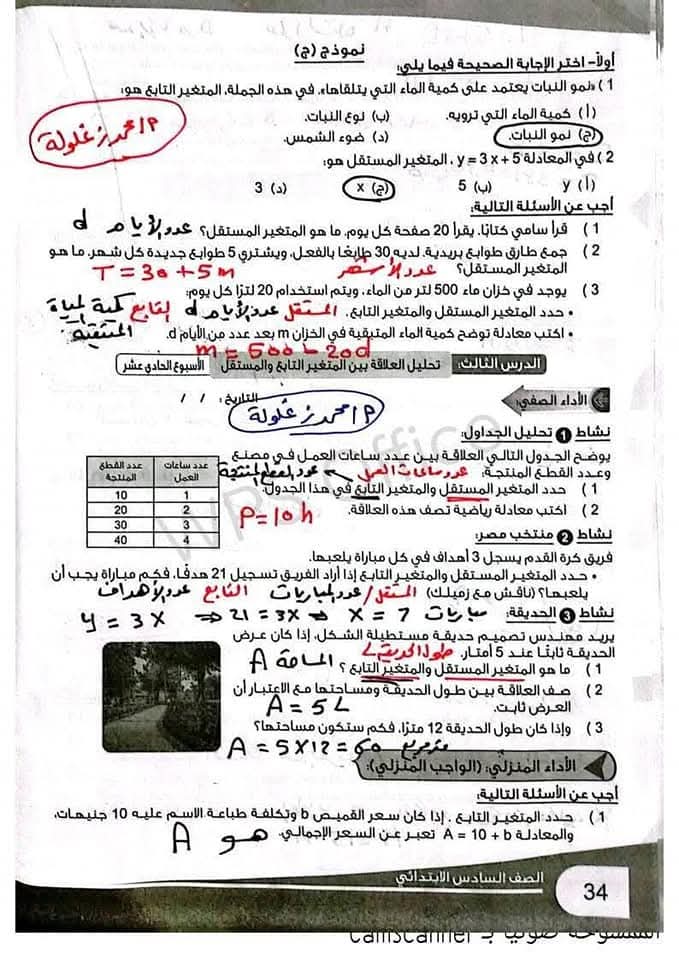 نموذج (ج)
أولاً- اختر الإجابة الصحيحة فيما يلي:
1 ) «نمو النبات يعتمد على كمية الماء التي يتلقاها»، في هذه الجملة، المتغير التابع هو:
(أ) كمية الماء التي ترويه. (ب) نوع النبات.
(ج) نمو النبات. (د) ضوء الشمس.
م/محمد زغلولة
2 ) في المعادلة y = 3 x + 5 ، المتغير المستقل هو:
(أ) y (ب) 5 (ج) x (د) 3
أجب عن الأسئلة التالية:
1 ) قرأ سامي كتابًا. يقرأ 20 صفحة كل يوم، ما هو المتغير المستقل؟ عدد الأيام d
2 ) جمع طارق طوابع بريدية. لديه 30 طابعًا بالفعل، ويشتري 5 طوابع جديدة كل شهر، ما هو
المتغير المستقل؟ عدد الأشهر T = 30 + 5m
3 ) يوجد في خزان ماء 500 لتر من الماء، ويتم استخدام 20 لترًا كل يوم:
• حدد المتغير المستقل والمتغير التابع. المستقل عدد الأيام d التابع كمية المياه المتبقية
• اكتب معادلة توضح كمية الماء المتبقية في الخزان m بعد عدد من الأيام d.
m = 500 - 20d
الدرس الثالث: تحليل العلاقة بين المتغير التابع والمستقل الأسبوع الحادي عشر
الأداء الصفي: التاريخ: / /
م/محمد زغلولة
نشاط 1 تحليل الجداول:
يوضح الجدول التالي العلاقة بين عدد ساعات العمل في مصنع
وعدد القطع المنتجة: عدد ساعات العمل عدد القطع المنتجة
1 ) حدد المتغير المستقل والمتغير التابع في هذا الجدول.
2 ) اكتب معادلة رياضية تصف هذه العلاقة. P = 10h
عدد ساعات العمل عدد القطع المنتجة
1 10
2 20
3 30
4 40
نشاط 2 منتخب مصر:
فريق كرة القدم يسجل 3 أهداف في كل مباراة يلعبها.
• حدد المتغير المستقل والمتغير التابع إذا أراد الفريق تسجيل 21 هدفًا، فكم مباراة يجب أن
يلعبها؟ (ناقش مع زميلك) المستقل / عدد المباريات التابع عدد الأهداف
نشاط 3 الحديقة: y = 3x ⇒ 21 = 3x ⇒ x = 7 مباريات
يريد مهندس تصميم حديقة مستطيلة الشكل، إذا كان عرض
الحديقة ثابتًا عند 5 أمتار. طول الحديقة L
1 ) ما هو المتغير المستقل والمتغير التابع ؟ المساحة A
2 ) صف العلاقة بين طول الحديقة ومساحتها مع الاعتبار أن
العرض ثابت. A = 5L
3 ) وإذا كان طول الحديقة 12 مترًا، فكم ستكون مساحتها؟
A = 5 × 12 = 60 متر مربع
الأداء المنزلي: (الواجب المنزلي):
أجب عن الأسئلة التالية:
1 ) حدد المتغير التابع ، إذا كان سعر القميص b وتكلفة طباعة الاسم عليه 10 جنيهات،
والمعادلة A = 10 + b تعبر عن السعر الإجمالي. هو A
الصف السادس الابتدائي
34
الممسوحة ضوئيا بـ CamScanner
WPS Office